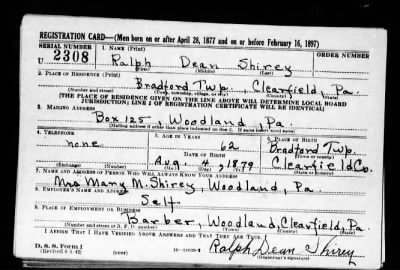 REGISTRATION CARD—(Men born on or after April 28, 1877 and on or before February 16, 1897)
SERIAL NUMBER 1. NAME (Print) ORDER NUMBER
U 2308 Ralph Dean Shirey
(First) (Middle) (Last)
2. PLACE OF RESIDENCE (Print)
Bradford Twp., Clearfield, Pa.
(Number and street) (Town, township, village, or city) (County) (State)
[THE PLACE OF RESIDENCE GIVEN ON THE LINE ABOVE WILL DETERMINE LOCAL BOARD
JURISDICTION; LINE 2 OF REGISTRATION CERTIFICATE WILL BE IDENTICAL]
3. MAILING ADDRESS
Box 125, Woodland, Pa.
[Mailing address if other than place indicated on line 2. If same insert word same]
4. TELEPHONE 5. AGE IN YEARS 6. PLACE OF BIRTH
none 62 Bradford Twp.
DATE OF BIRTH (Town or county)
Aug. 4, 1879 Clearfield Co.
(Exchange) (Number) (Mo.) (Day) (Yr.) (State or country)
7. NAME AND ADDRESS OF PERSON WHO WILL ALWAYS KNOW YOUR ADDRESS
Mrs Mary M. Shirey, Woodland, Pa.
8. EMPLOYER'S NAME AND ADDRESS
Self
9. PLACE OF EMPLOYMENT OR BUSINESS
Barber, Woodland, Clearfield, Pa.
(Number and street or R. F. D. number) (Town) (County) (State)
I AFFIRM THAT I HAVE VERIFIED ABOVE ANSWERS AND THAT THEY ARE TRUE.
D. S. S. Form 1 Ralph Dean Shirey
(Revised 4-1-42) (Registrant's signature)